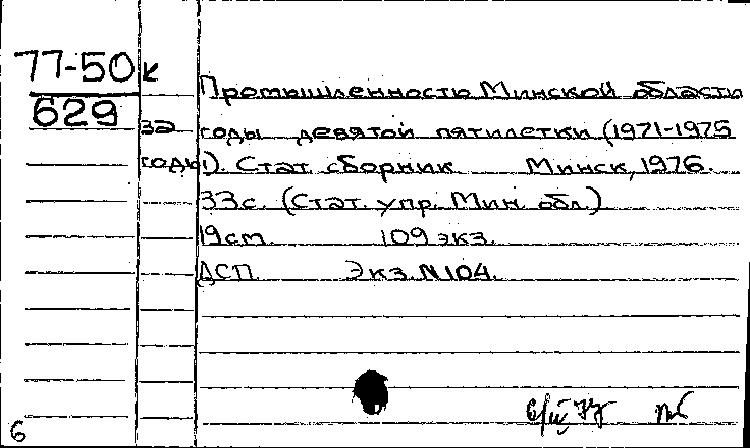 77-50к
629
Промышленность Минской области
за годы девятой пятилетки (1971-1975
годы). Стат. сборник. Минск, 1976.
33с. (Стат. упр. Мин. обл.)
19см. 109 экз.
ДСП. Экз. N104.
6